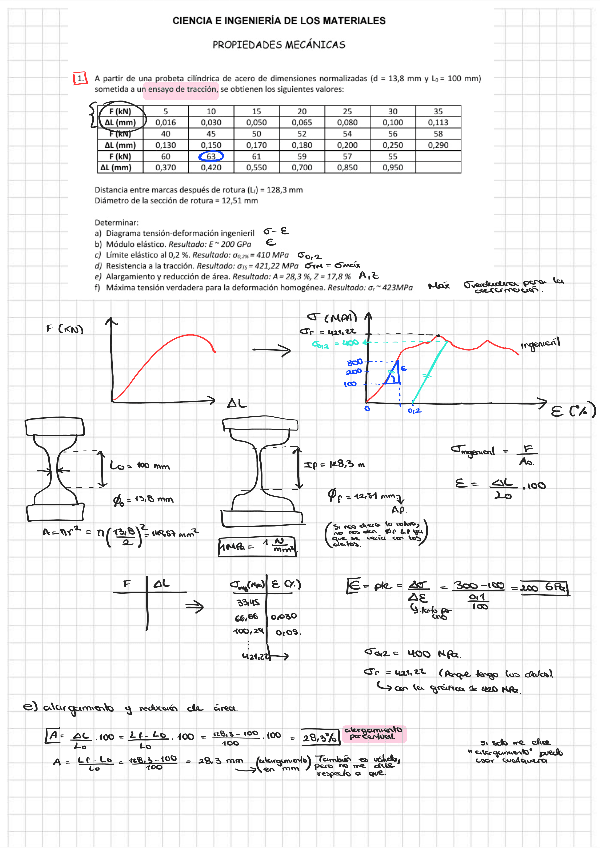 CIENCIA E INGENIERÍA DE LOS MATERIALES
PROPIEDADES MECÁNICAS
1. A partir de una probeta cilíndrica de acero de dimensiones normalizadas (d = 13,8 mm y L₀ = 100 mm)
sometida a un ensayo de tracción, se obtienen los siguientes valores:
F (kN) 5 10 15 20 25 30 35
ΔL (mm) 0,016 0,030 0,050 0,065 0,080 0,100 0,113
F (kN) 40 45 50 52 54 56 58
ΔL (mm) 0,130 0,150 0,170 0,180 0,200 0,250 0,290
F (kN) 60 63 61 59 57 55
ΔL (mm) 0,370 0,420 0,550 0,700 0,850 0,950
Distancia entre marcas después de rotura (Lf) = 128,3 mm
Diámetro de la sección de rotura = 12,51 mm
Determinar:
a) Diagrama tensión-deformación ingenieril σ - ε
b) Módulo elástico. Resultado: E ~ 200 GPa E
c) Límite elástico al 0,2 %. Resultado: σ0,2% = 410 MPa σ0,2
d) Resistencia a la tracción. Resultado: σTS = 421,22 MPa σTM - σmáx
e) Alargamiento y reducción de área. Resultado: A = 28,3 %, Z = 17,8 % A, Z
f) Máxima tensión verdadera para la deformación homogénea. Resultado: σt ~ 423MPa Máx σverdadera para la
deformación.
F (KN)
ΔL
σ (MPA)
σr = 421,22
σ0,2 = 400
300
200
100
E
0
0,2
ingenieril
ε (%)
L₀ = 100 mm
ϕ₀ = 13,8 mm
A = πr² = π(13,8/2)² = 149,57 mm²
lf = 128,3 m
ϕf = 12,51 mm
Af.
1 MPa = 1 N/mm²
σingenieril = F/A₀.
ε = ΔL/L₀ . 100
F ΔL
σing (MPa) ε (%)
33,45
66,86 0,030
100,29 0,05.
...
421,22
E = pte = Δσ/Δε = 300-100 / 0,1/100 = 200 GPa
σ0,2 = 400 MPa.
σr = 421,22 (Porque tengo los datos)
con la gráfica se 420 MPa.
e) alargamiento y reducción de área
A = ΔL/L₀ . 100 = Lf - L₀/L₀ . 100 = 128,3 - 100/100 . 100 = 28,3% alargamiento
porcentual
A = Lf - L₀/L₀ = 128,3 - 100/100 = 28,3 mm (alargamiento en mm) También es válido,
pero no me dice
respecto a que.
si solo me dice
"alargamiento" puedo
usar cualquiera